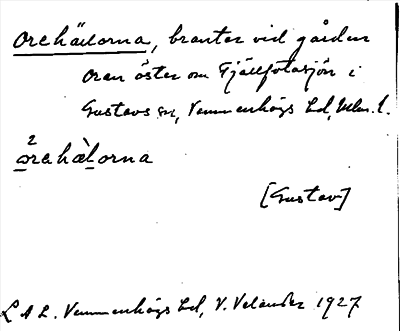 Orehällorna, branter vid gården
Oran öster om Fjällfotasjön i
Gustavs sn, Vemmenhögs hd, Mlm. l.
2
òrehàḷorna
[Gustav]
L A L. Vemmenhögs hd, V. Velander 1927